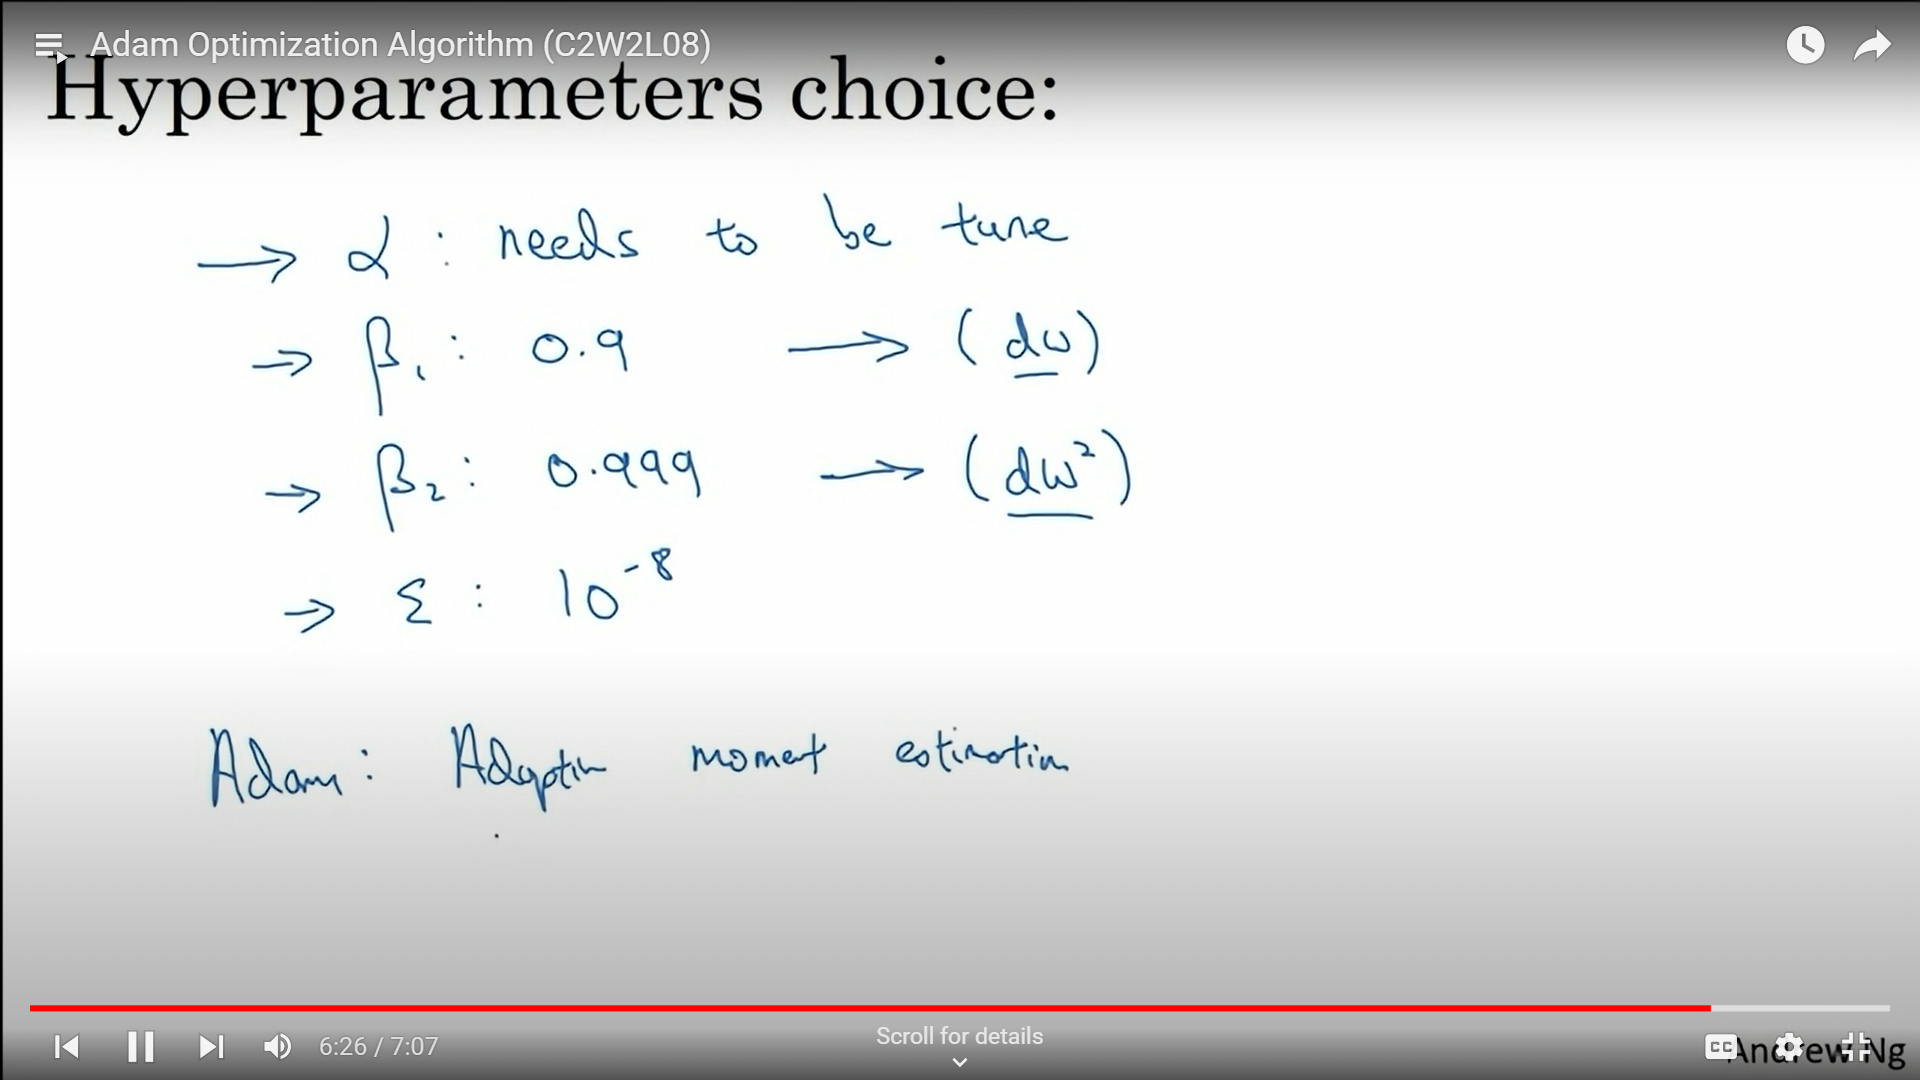 Adam Optimization Algorithm (C2W2L08)
Hyperparameters choice:
→ α : needs to be tune
→ β₁ : 0.9 → (dw)
→ β₂ : 0.999 → (dw²)
→ ε : 10⁻⁸
Adam : Adaptive moment estimation
6:26 / 7:07
Scroll for details
CC
Andrew Ng